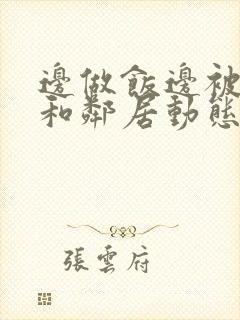 邊做飯邊被
和鄰居動態
張雲府